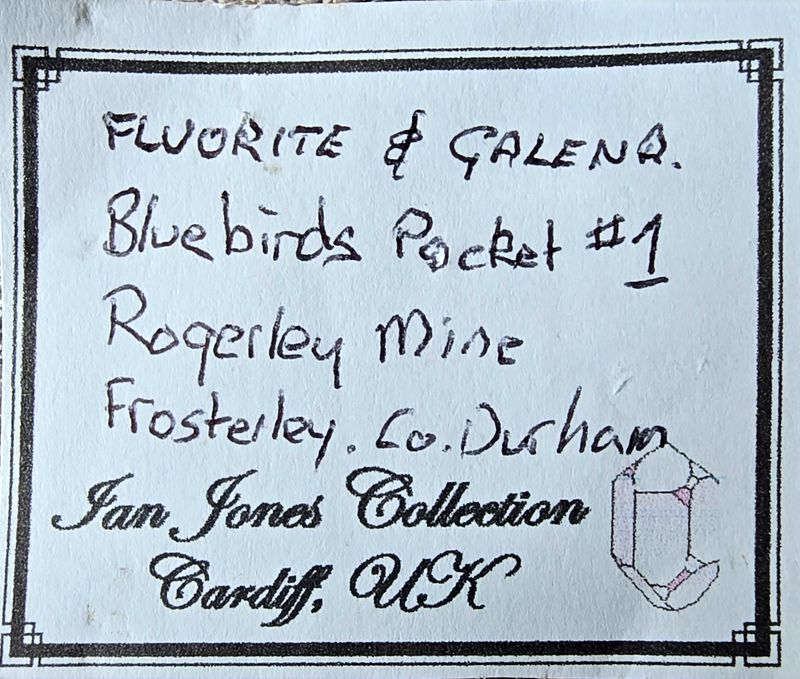 FLUORITE & GALENA.
Bluebirds Pocket #1
Rogerley Mine
Frosterley. Co. Durham
Ian Jones Collection
Cardiff, UK